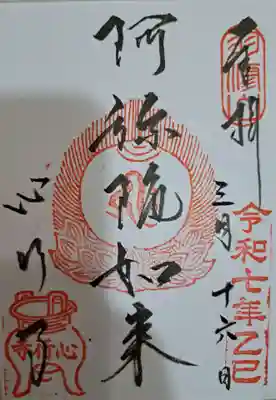 奉拝
令和七年乙巳
三月十六日
阿弥陀如来
心行寺
心行寺